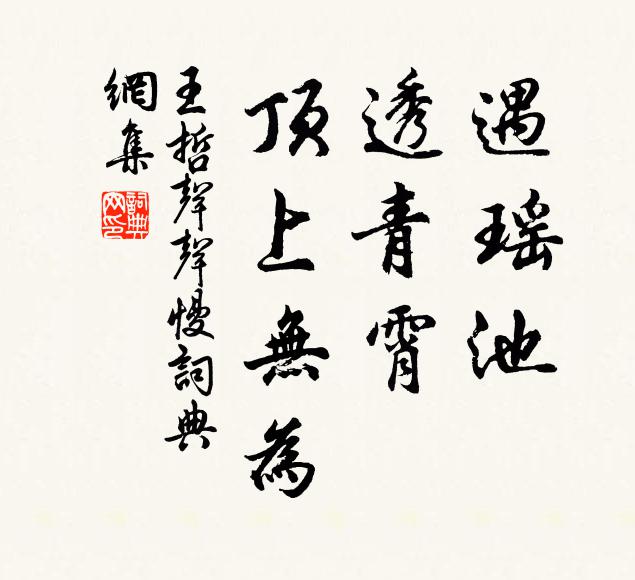 遇瑶池
透青霄
頂上無為
王哲聲聲慢詞典
網集
詞典
网印